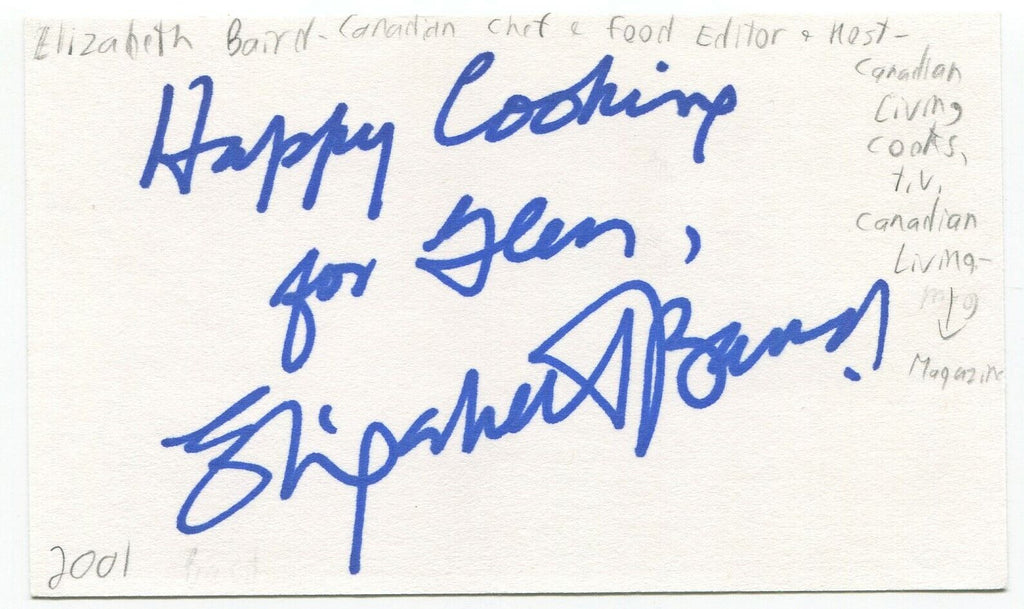 Elizabeth Baird - Canadian Chef & Food Editor & Host -
Canadian
Living
Cooks,
T.V.
Canadian
Living -
Magazine
Happy Cooking
for Glen,
Elizabeth Baird!
2001